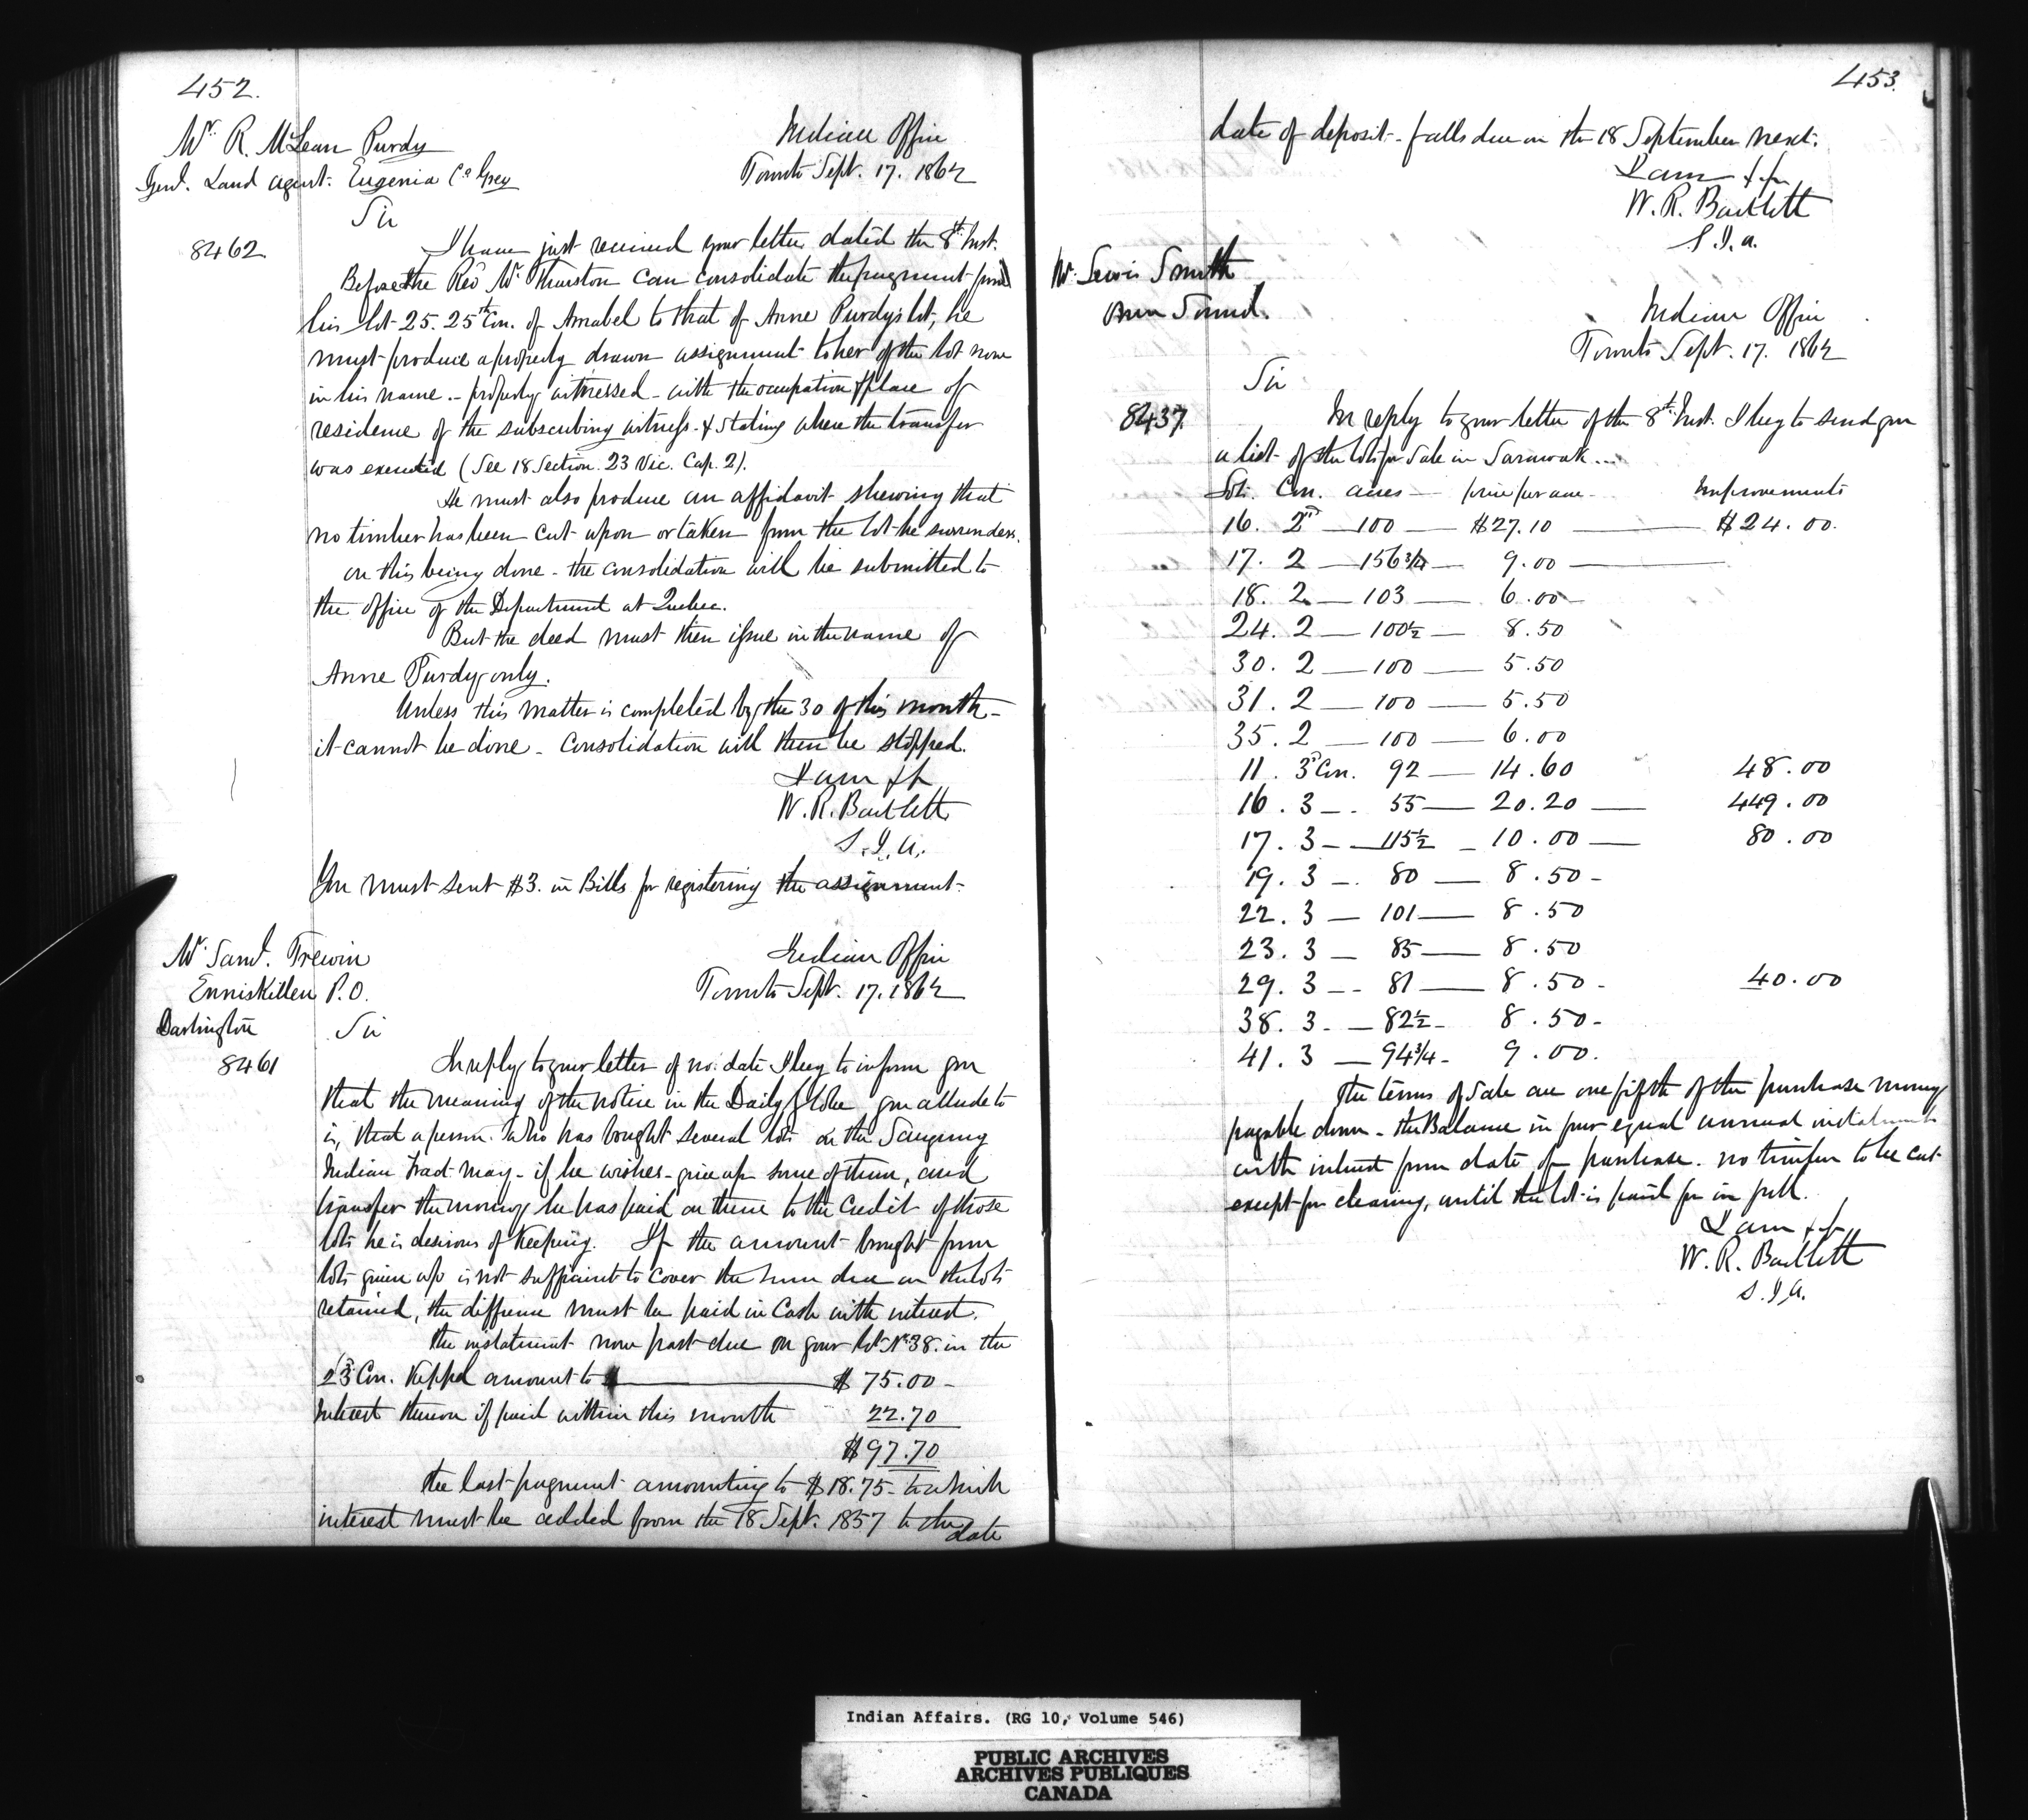 452.
Mr. R. McLean Purdy
Genl. Land Agent. Eugenia Co Grey
Indian Office
Toronto Sept. 17. 1862
Sir
8462
I have just received your letter dated the 8th Inst.
Before the Revd Mr Thurston can consolidate the payment from
his lot 25. 25th Con. of Amabel to that of Anne Purdy's lot, he
must produce a properly drawn assignment to her of the lot now
in his name. - properly witnessed - with the occupation & place of
residence of the subscribing witness. & stating where the transfer
was executed (See 18 Section. 23 Vic. Cap. 2).
He must also produce an affidavit shewing that
no timber has been cut upon or taken from the lot he surrenders.
on this being done - the consolidation will be submitted to
the office of the Department at Quebec.
But the deed must then issue in the name of
Anne Purdy only.
Unless this matter is completed by the 30 of this month -
it cannot be done - Consolidation will then be stopped.
I am &c
W. R. Bartlett
S. I. A.
You must sent $3. in Bills for registering the assignment.
Mr. Saml. Trewin
Enniskillen P.O.
Darlington
Indian Office
Toronto Sept. 17. 1862
Sir
8461
In reply to your letter of no date I beg to inform you
that the meaning of the notice in the Daily Globe you allude to
is, that a person who has bought several lots on the Saugeeny
Indian Tract may - if he wishes - give up some of them, and
transfer the money he has paid on them to the Credit of those
lots he is desirous of Keeping. If the amount brought from
lots given up is not sufficient to cover the sum due on the lots
retained, the difference must be paid in Cash with interest.
The instalment now past due on your lot No 38. in the
23 Con. Keppel amount to $ 75.00 -
Interest thereon if paid within this month 22.70
$97.70
The last payment amounting to $18.75 - to which
interest must be added from the 18 Sept. 1857 to the
date
453.
date of deposit - falls due on the 18 September next.
I am &c
W. R. Bartlett
S. I. A.
Mr. Lewis Smith
Owen Sound.
Indian Office
Toronto Sept. 17. 1862
Sir
8437.
In reply to your letter of the 8th Inst. I beg to send you
a list of the lots for Sale in Sarawak...
Lots. Con. acres - price per acre - Improvements
16. 2nd - 100 - $27.10 - $24.00.
17. 2 - 156 3/4 - 9.00 -
18. 2 - 103 - 6.00 -
24. 2 - 100 1/2 - 8.50
30. 2 - 100 - 5.50
31. 2 - 100 - 5.50
35. 2 - 100 - 6.00
11. 3d Con. 92 - 14.60 48.00
16. 3 - 55 - 20.20 - 449.00
17. 3 - 115 1/2 - 10.00 - 80.00
19. 3 - 80 - 8.50 -
22. 3 - 101 - 8.50
23. 3 - 85 - 8.50
29. 3 - 81 - 8.50 - 40.00
38. 3. - 82 1/2 - 8.50 -
41. 3 - 94 3/4 - 9.00.
The terms of Sale are one fifth of the purchase money
payable down - the Balance in four equal annual instalments
with interest from date of purchase. no timber to be cut
except for clearing, until the lot is paid for in full.
I am &c
W. R. Bartlett
S. I. A.
Indian Affairs. (RG 10, Volume 546)
PUBLIC ARCHIVES
ARCHIVES PUBLIQUES
CANADA